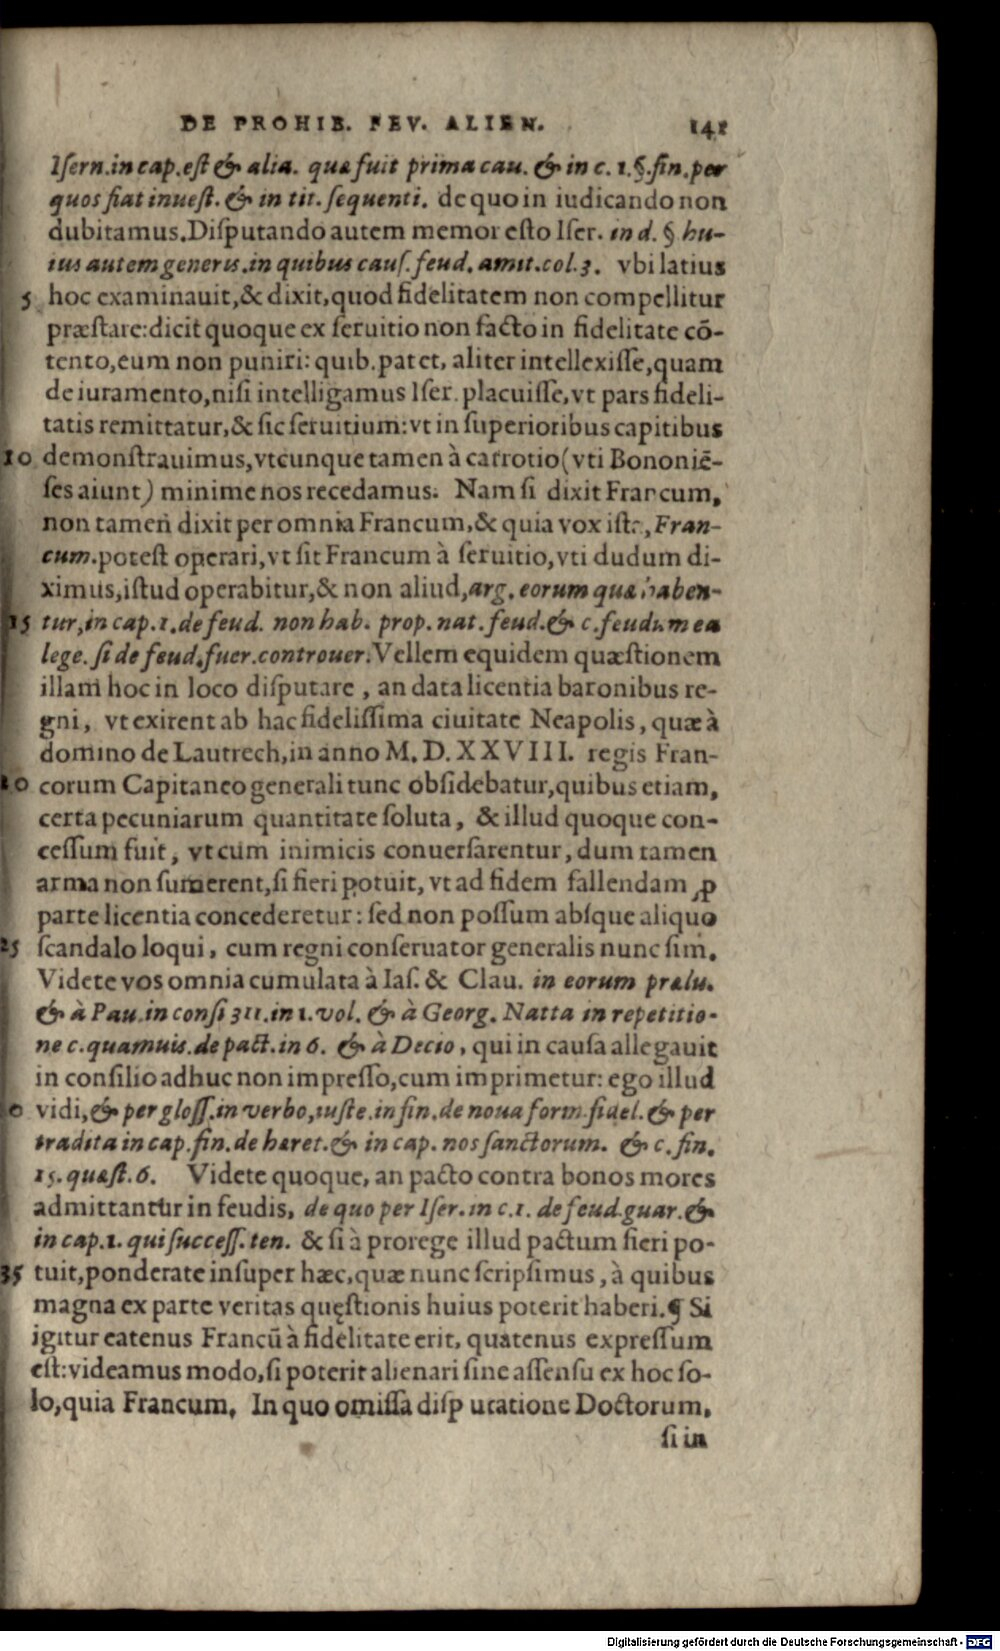 DE PROHIB. FEV. ALIEN. 141
Iſern. in cap. eſt & alia. quæ fuit prima cau. & in c. 1. §. fin. per
quos fiat inueſt. & in tit. ſequenti. de quo in iudicando non
dubitamus. Diſputando autem memor eſto Iſer. in d. § hu-
ius autem generis. in quibus cauſ. feud. amit. col. 3. vbi latius
5 hoc examinauit, & dixit, quod fidelitatem non compellitur
præſtare: dicit quoque ex ſeruitio non facto in fidelitate cō-
tento, eum non puniri: quib. patet, aliter intellexiſſe, quam
de iuramento, niſi intelligamus Iſer. placuiſſe, vt pars fideli-
tatis remittatur, & ſic ſeruitium: vt in ſuperioribus capitibus
10 demonſtrauimus, vtcunque tamen à carrotio (vti Bononiē-
ſes aiunt) minime nos recedamus. Nam ſi dixit Francum,
non tamen dixit per omnia Francum, & quia vox iſta, Fran-
cum. poteſt operari, vt ſit Francum à ſeruitio, vti dudum di-
ximus, iſtud operabitur, & non aliud, arg. eorum quæ haben-
15 tur, in cap. 1. de feud. non hab. prop. nat. feud. & c. feudum ea
lege. ſi de feud. fuer. controuer. Vellem equidem quæſtionem
illam hoc in loco diſputare, an data licentia baronibus re-
gni, vt exirent ab hac fideliſſima ciuitate Neapolis, quæ à
domino de Lautrech, in anno M. D. XXVIII. regis Fran-
20 corum Capitaneo generali tunc obſidebatur, quibus etiam,
certa pecuniarum quantitate ſoluta, & illud quoque con-
ceſſum fuit, vt cum inimicis conuerſarentur, dum tamen
arma non ſumerent, ſi fieri potuit, vt ad fidem fallendam ꝓ
parte licentia concederetur: ſed non poſſum abſque aliquo
25 ſcandalo loqui, cum regni conſeruator generalis nunc ſim.
Videte vos omnia cumulata à Iaſ. & Clau. in eorum prælu.
& à Pau. in conſi 311. in 1. vol. & à Georg. Natta in repetitio-
ne c. quamuis. de pact. in 6. & à Decio, qui in cauſa allegauit
in conſilio adhuc non impreſſo, cum imprimetur: ego illud
0 vidi, & per gloſſ. in verbo, iuſte. in fin. de noua form. fidel. & per
tradita in cap. fin. de hæret. & in cap. nos ſanctorum. & c. fin.
15. quæſt. 6. Videte quoque, an pacto contra bonos mores
admittantur in feudis, de quo per Iſer. in c. 1. de feud. guar. &
in cap. 1. qui ſucceſſ. ten. & ſi à prorege illud pactum fieri po-
35 tuit, ponderate inſuper hæc, quæ nunc ſcripſimus, à quibus
magna ex parte veritas quęſtionis huius poterit haberi. ¶ Si
igitur eatenus Francū à fidelitate erit, quatenus expreſſum
eſt: videamus modo, ſi poterit alienari ſine aſſenſu ex hoc ſo-
lo, quia Francum. In quo omiſſa diſputatione Doctorum,
ſi in
Digitalisierung gefördert durch die Deutsche Forschungsgemeinschaft - DFG